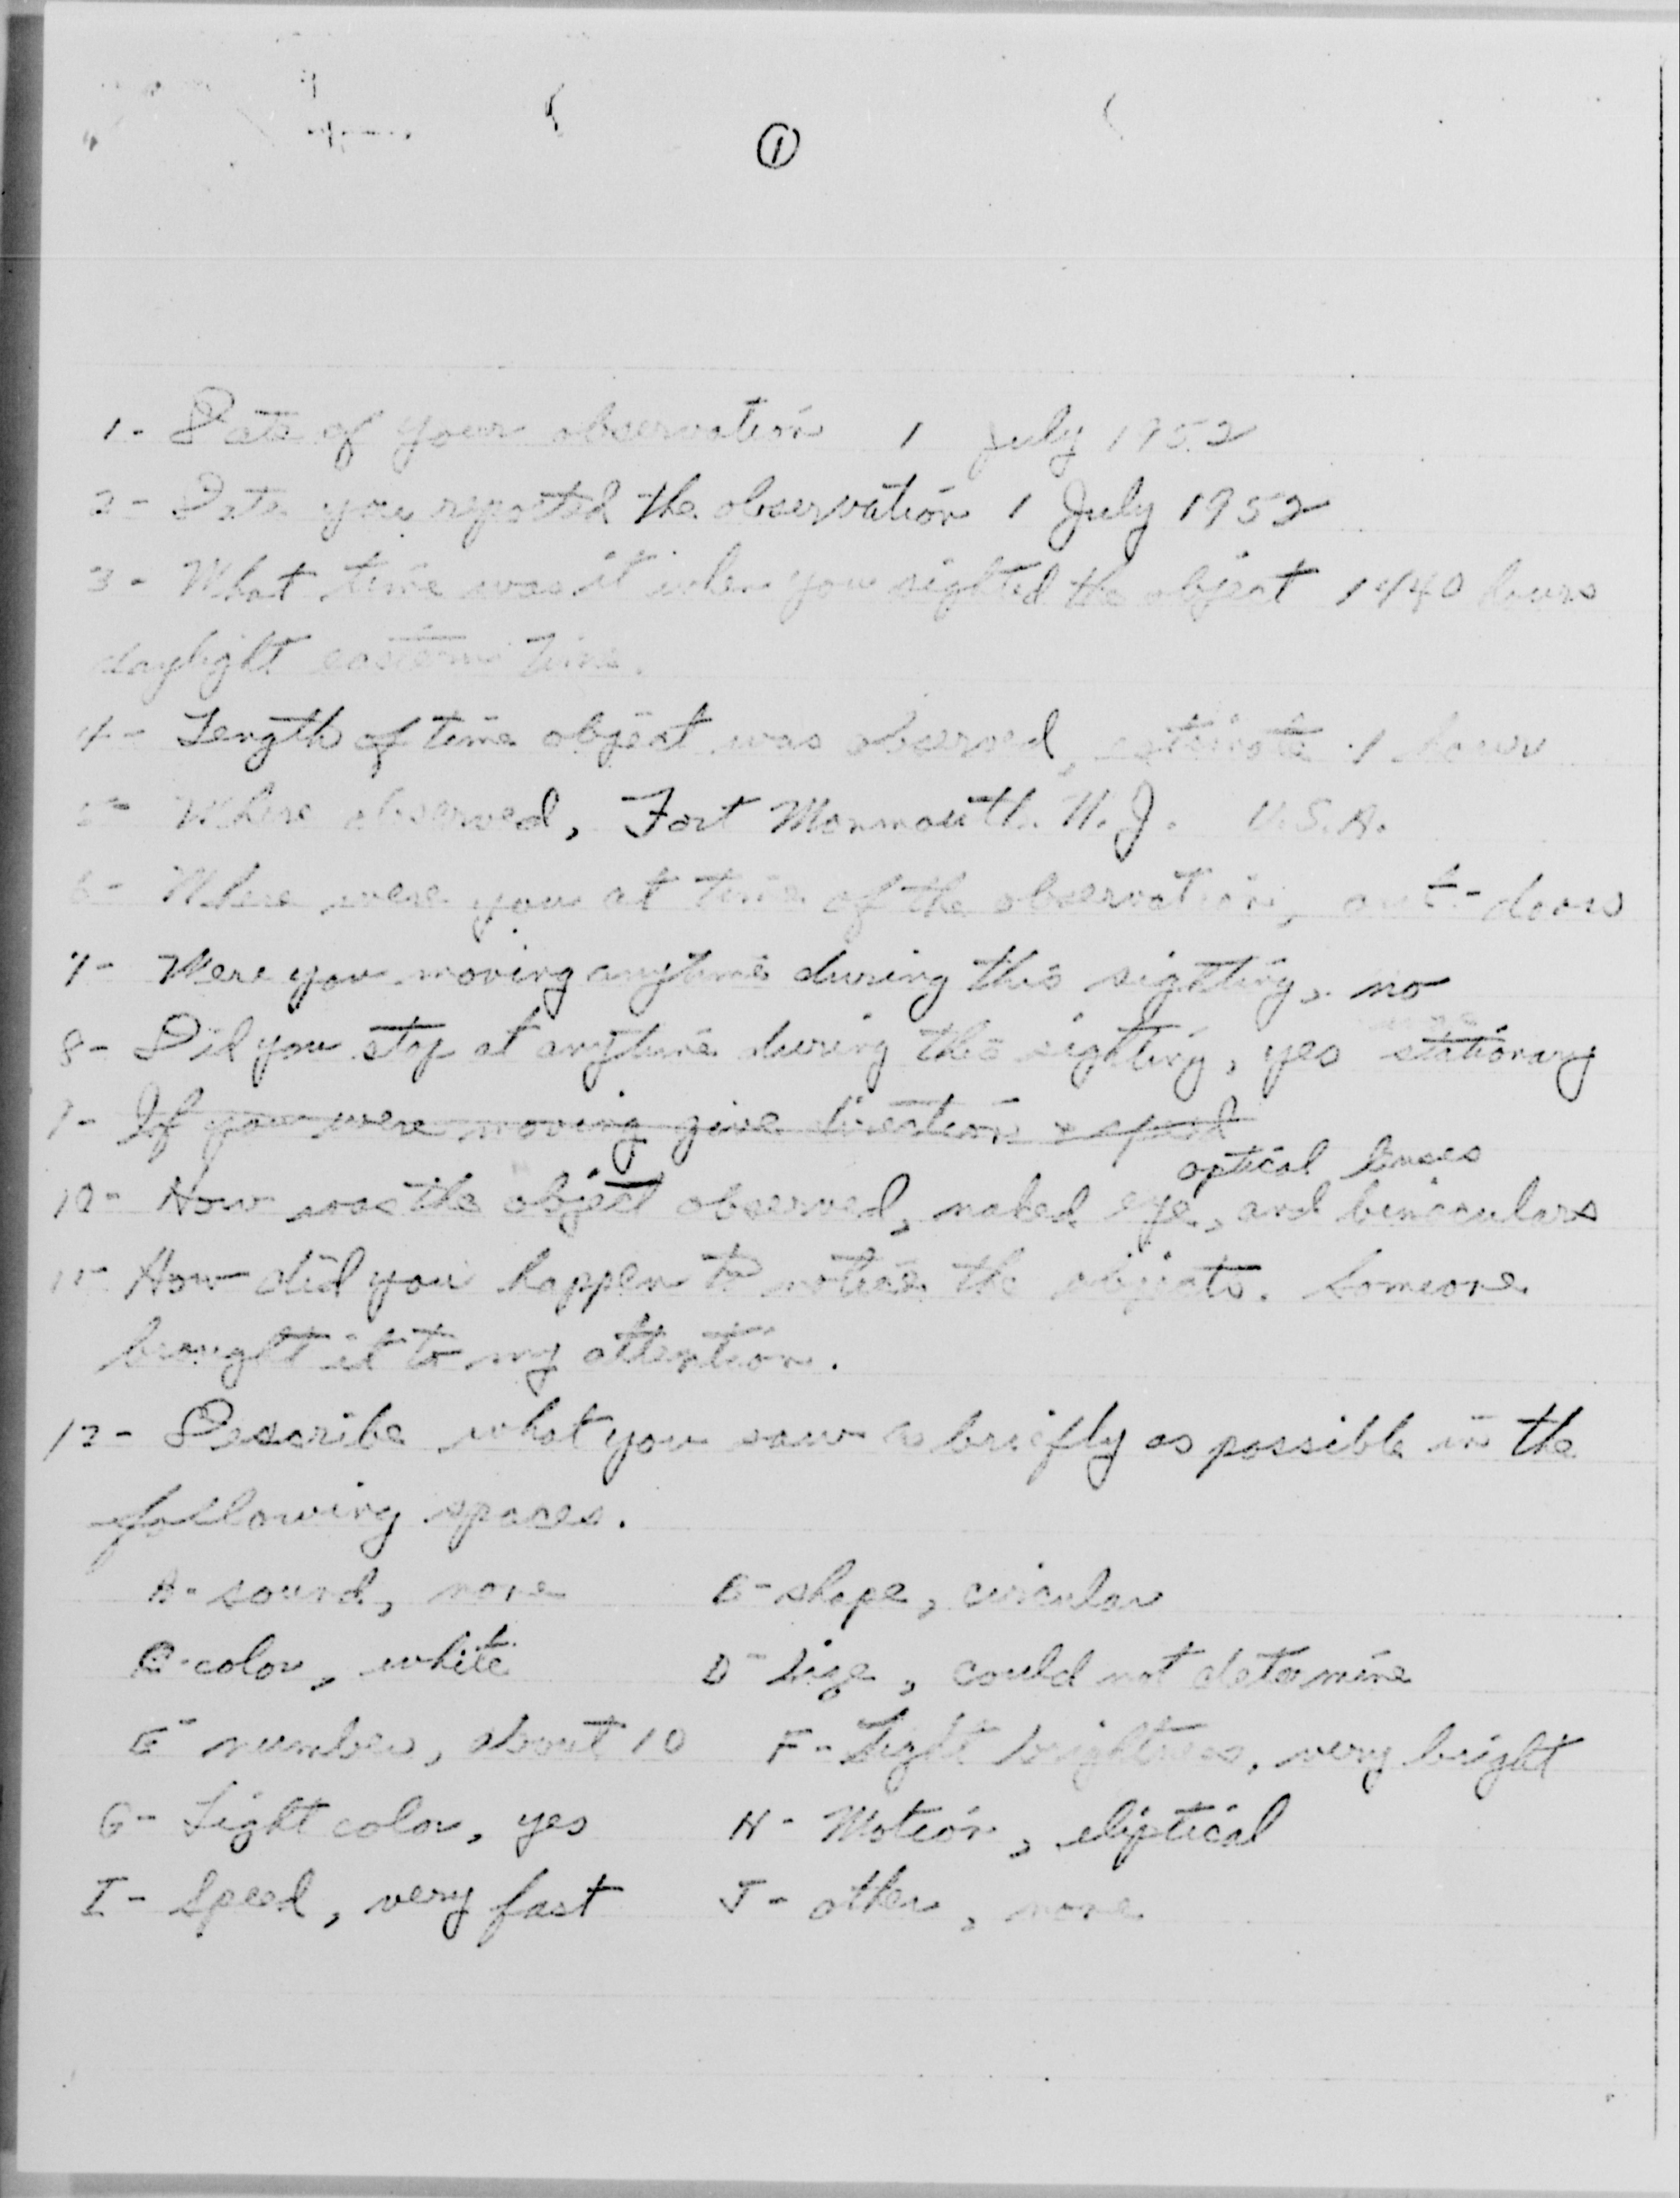 ①
1- Date of your observation 1 July 1952
2- Date you reported the observation 1 July 1952
3- What time was it when you sighted the object 1440 hours
daylight eastern time.
4- Length of time object was observed, estimate 1 hour
5- Where observed, Fort Monmouth N.J. U.S.A.
6- Where were you at time of the observation, out-doors
7- Were you moving anytime during this sighting, no
8- Did you stop at anytime during this sighting, yes stationary
9- If you were moving give direction & speed
optical lenses
10- How was the object observed, naked eye, and binoculars
11- How did you happen to notice the objects. Someone
brought it to my attention.
12- Describe what you saw as briefly as possible in the
following spaces.
A- sound, none B- shape, circular
C- color, white D- Size, could not determine
E- number, about 10 F- Light brightness, very bright
G- Light color, yes H- Motion, eliptical
I- Speed, very fast J- other, none